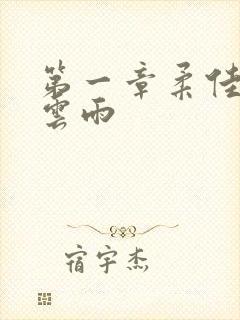 第一章柔佳
雲雨
宿宇杰